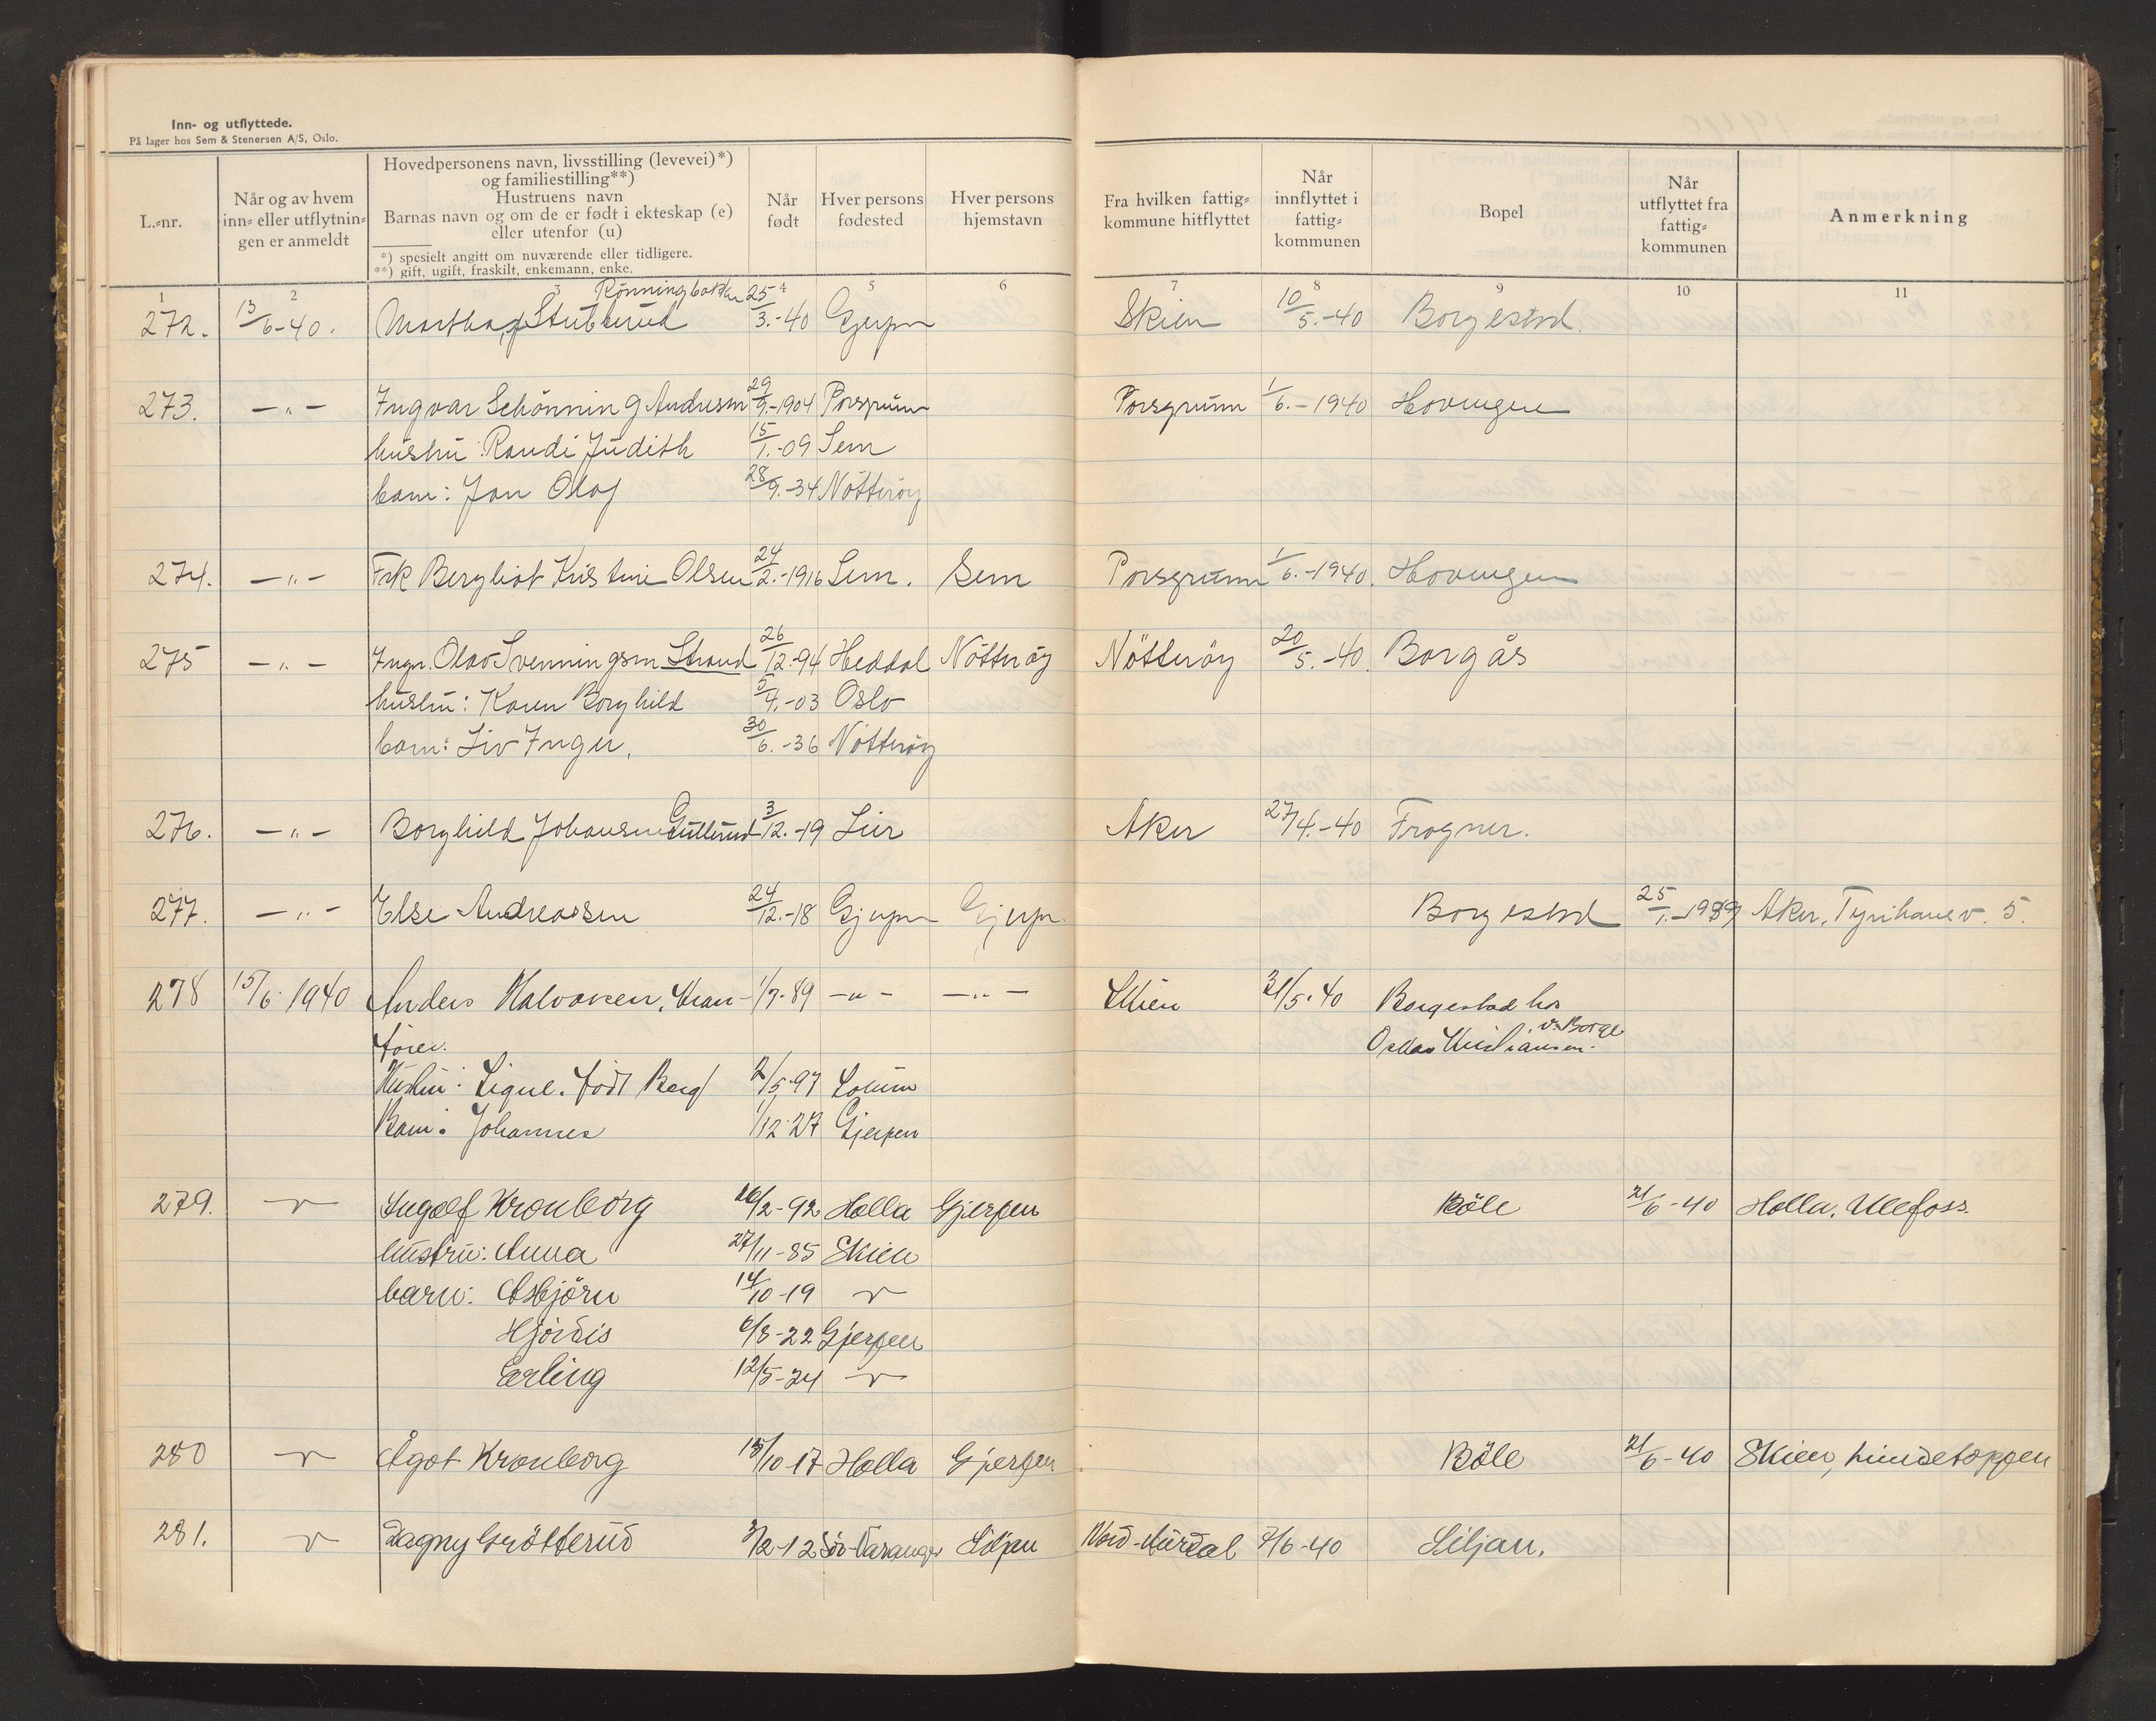 Inn- og utflyttede.
På lager hos Sem & Stenersen A/S, Oslo.
L.-nr. Når og av hvem inn- eller utflytnin- gen er anmeldt Hovedpersonens navn, livsstilling (levevei)*) og familiestilling**) Hustruens navn Barnas navn og om de er født i ekteskap (e) eller utenfor (u) Når født Hver persons fødested Hver persons hjemstavn Fra hvilken fattig- kommune hitflyttet Når innflyttet i fattig- kommunen Bopel Når utflyttet fra fattig- kommunen Anmerkning
*) spesielt angitt om nuværende eller tidligere.
**) gift, ugift, fraskilt, enkemann, enke.
1 2 3 4 5 6 7 8 9 10 11
272. 13/6-40. Martha Stubberud 25/3.-40 Gjerpen Skien 10/5.-40 Borgestad.
273. -"- Ingvar Schönning Andresen 29/9.-1904 Porsgrunn Porsgrunn 1/6.-1940 Hovengen
hustru: Randi Judith 15/1.-09 Sem
barn: Jan Olaf 28/9.-34 Nötteröy
274. -"- Frk Bergliot Kristine Olsen 24/2.-1916 Sem. Sem Porsgrunn 1/6.-1940. Hovengen
275 -"- Ingn. Olav Svenningsen Strand 26/12.-94 Heddal Nötteröy Nötteröy 20/5.-40. Borgås
hustru: Karen Borghild 5/4.-03 Oslo
barn: Liv Inger. 30/6.-36 Nötteröy
276. -"- Borghild Johansen Gullerud 3/12.-19 Lier Aker 27/4.-40 Frogner.
277. -"- Else Andreassen 24/12.-18 Gjerpen Gjerpen Borgestad 25/1.-1939 Aker, Tyrihansv. 5.
278 15/6. 1940 Anders Halvorsen, Kran- 1/7-89 -"- -"- Skien 31/5.40 Borgestad hos
förer. Oskar Kristiansen. v. Borge
Hustru: Signe. født Berg 2/5-97 Solum
Barn: Johannes 1/12-27 Gjerpen
279. -"- Ingolf Kronborg 26/2-92 Holla Gjerpen Böle 21/6-40 Holla. Ulefoss.
hustru: Anna 27/11-85 Skien
barn: Asbjörn 14/10-19 -"-
Hjördis 6/8-22 Gjerpen
Erling 12/5-24 -"-
280 -"- Ågot Kronborg 15/10-17 Holla Gjerpen Böle 21/6-40 Skien, Lundetoppen
281. -"- Dagny Grötterud 3/2-12 Sör-Varanger Siljan Nord-Aurdal 7/6-40 Siljan.